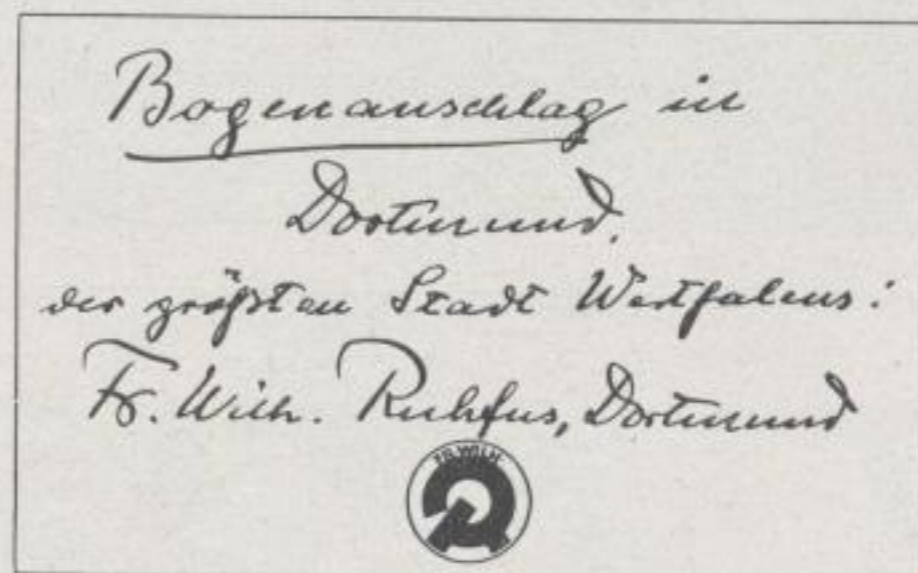 Bogenanschlag in
Dortmund,
der größten Stadt Westfalens:
Fr. Wilh. Ruhfus, Dortmund
FR. WILH.